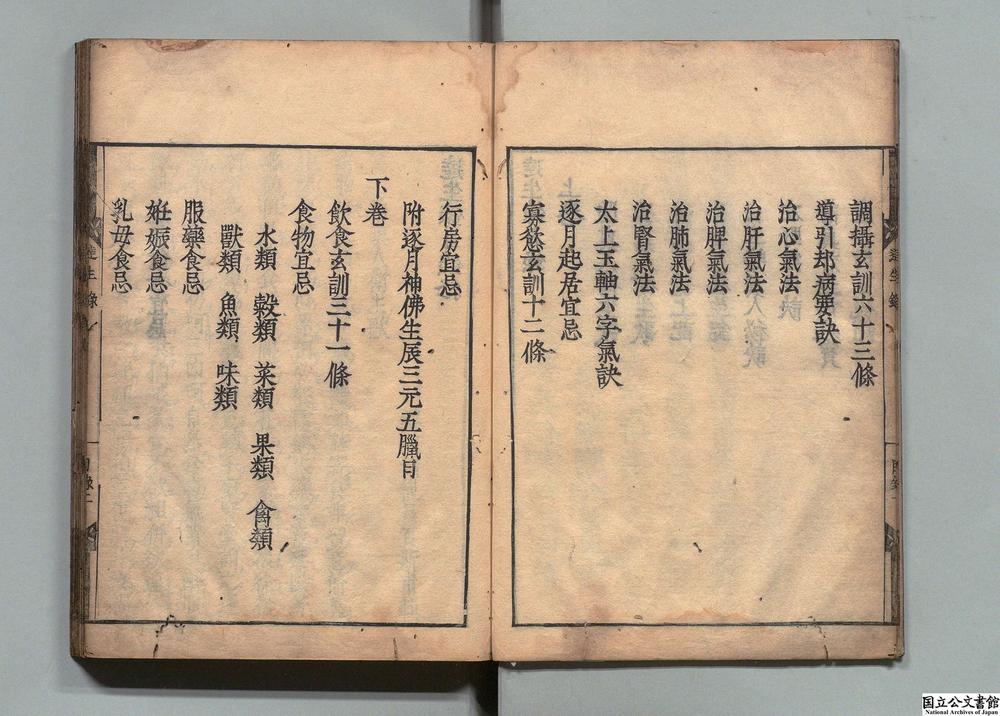 調攝玄訓六十三條
導引却病要訣
治心氣法
治肝氣法
治脾氣法
治肺氣法
治腎氣法
太上玉軸六字氣訣
逐月起居宜忌
寡慾玄訓十二條
行房宜忌
附逐月神佛生辰三元五臘日
下卷
飲食玄訓三十一條
食物宜忌
水類 穀類 菜類 果類 禽類
獸類 魚類 味類
服藥食忌
妊娠食忌
乳母食忌
国立公文書館
National Archives of Japan